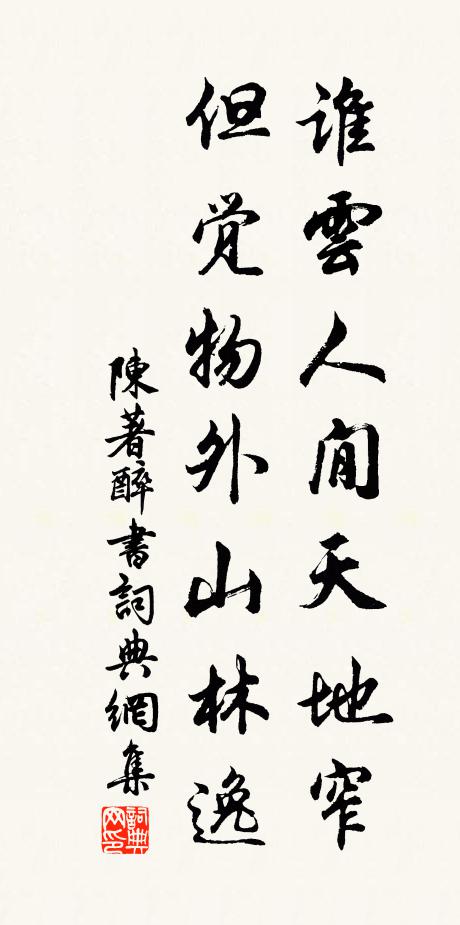 谁雲人间天地窄
但觉物外山林逸
陳著醉書詞典網集
詞典网印